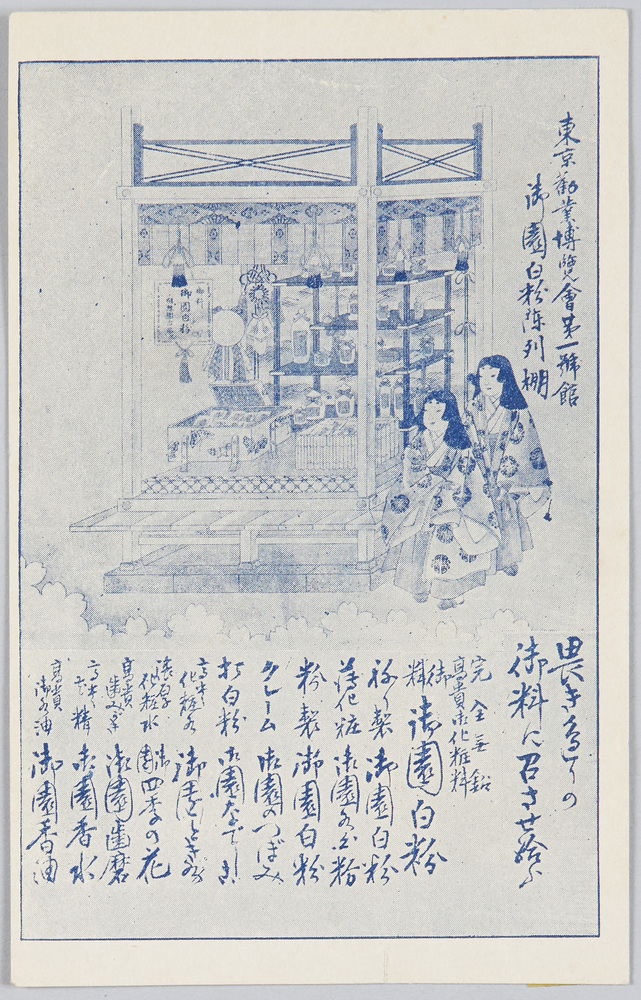 東京勧業博覧會第一號館
御園白粉陳列棚
御料
御園白粉
畏き辺りの
御料に召させ給ふ
完全無鉛
高貴御化粧料
御料 御園白粉
ねり製 御園白粉
薄化粧 御園水白粉
粉製 御園白粉
クレーム 御園のつぼみ
打白粉 御園なでしこ
高等化粧水 御園
濃厚化粧水 御園四季の花
高貴歯みがき 御園歯磨
高等香精 御園香水
高貴御髪油 御園香油